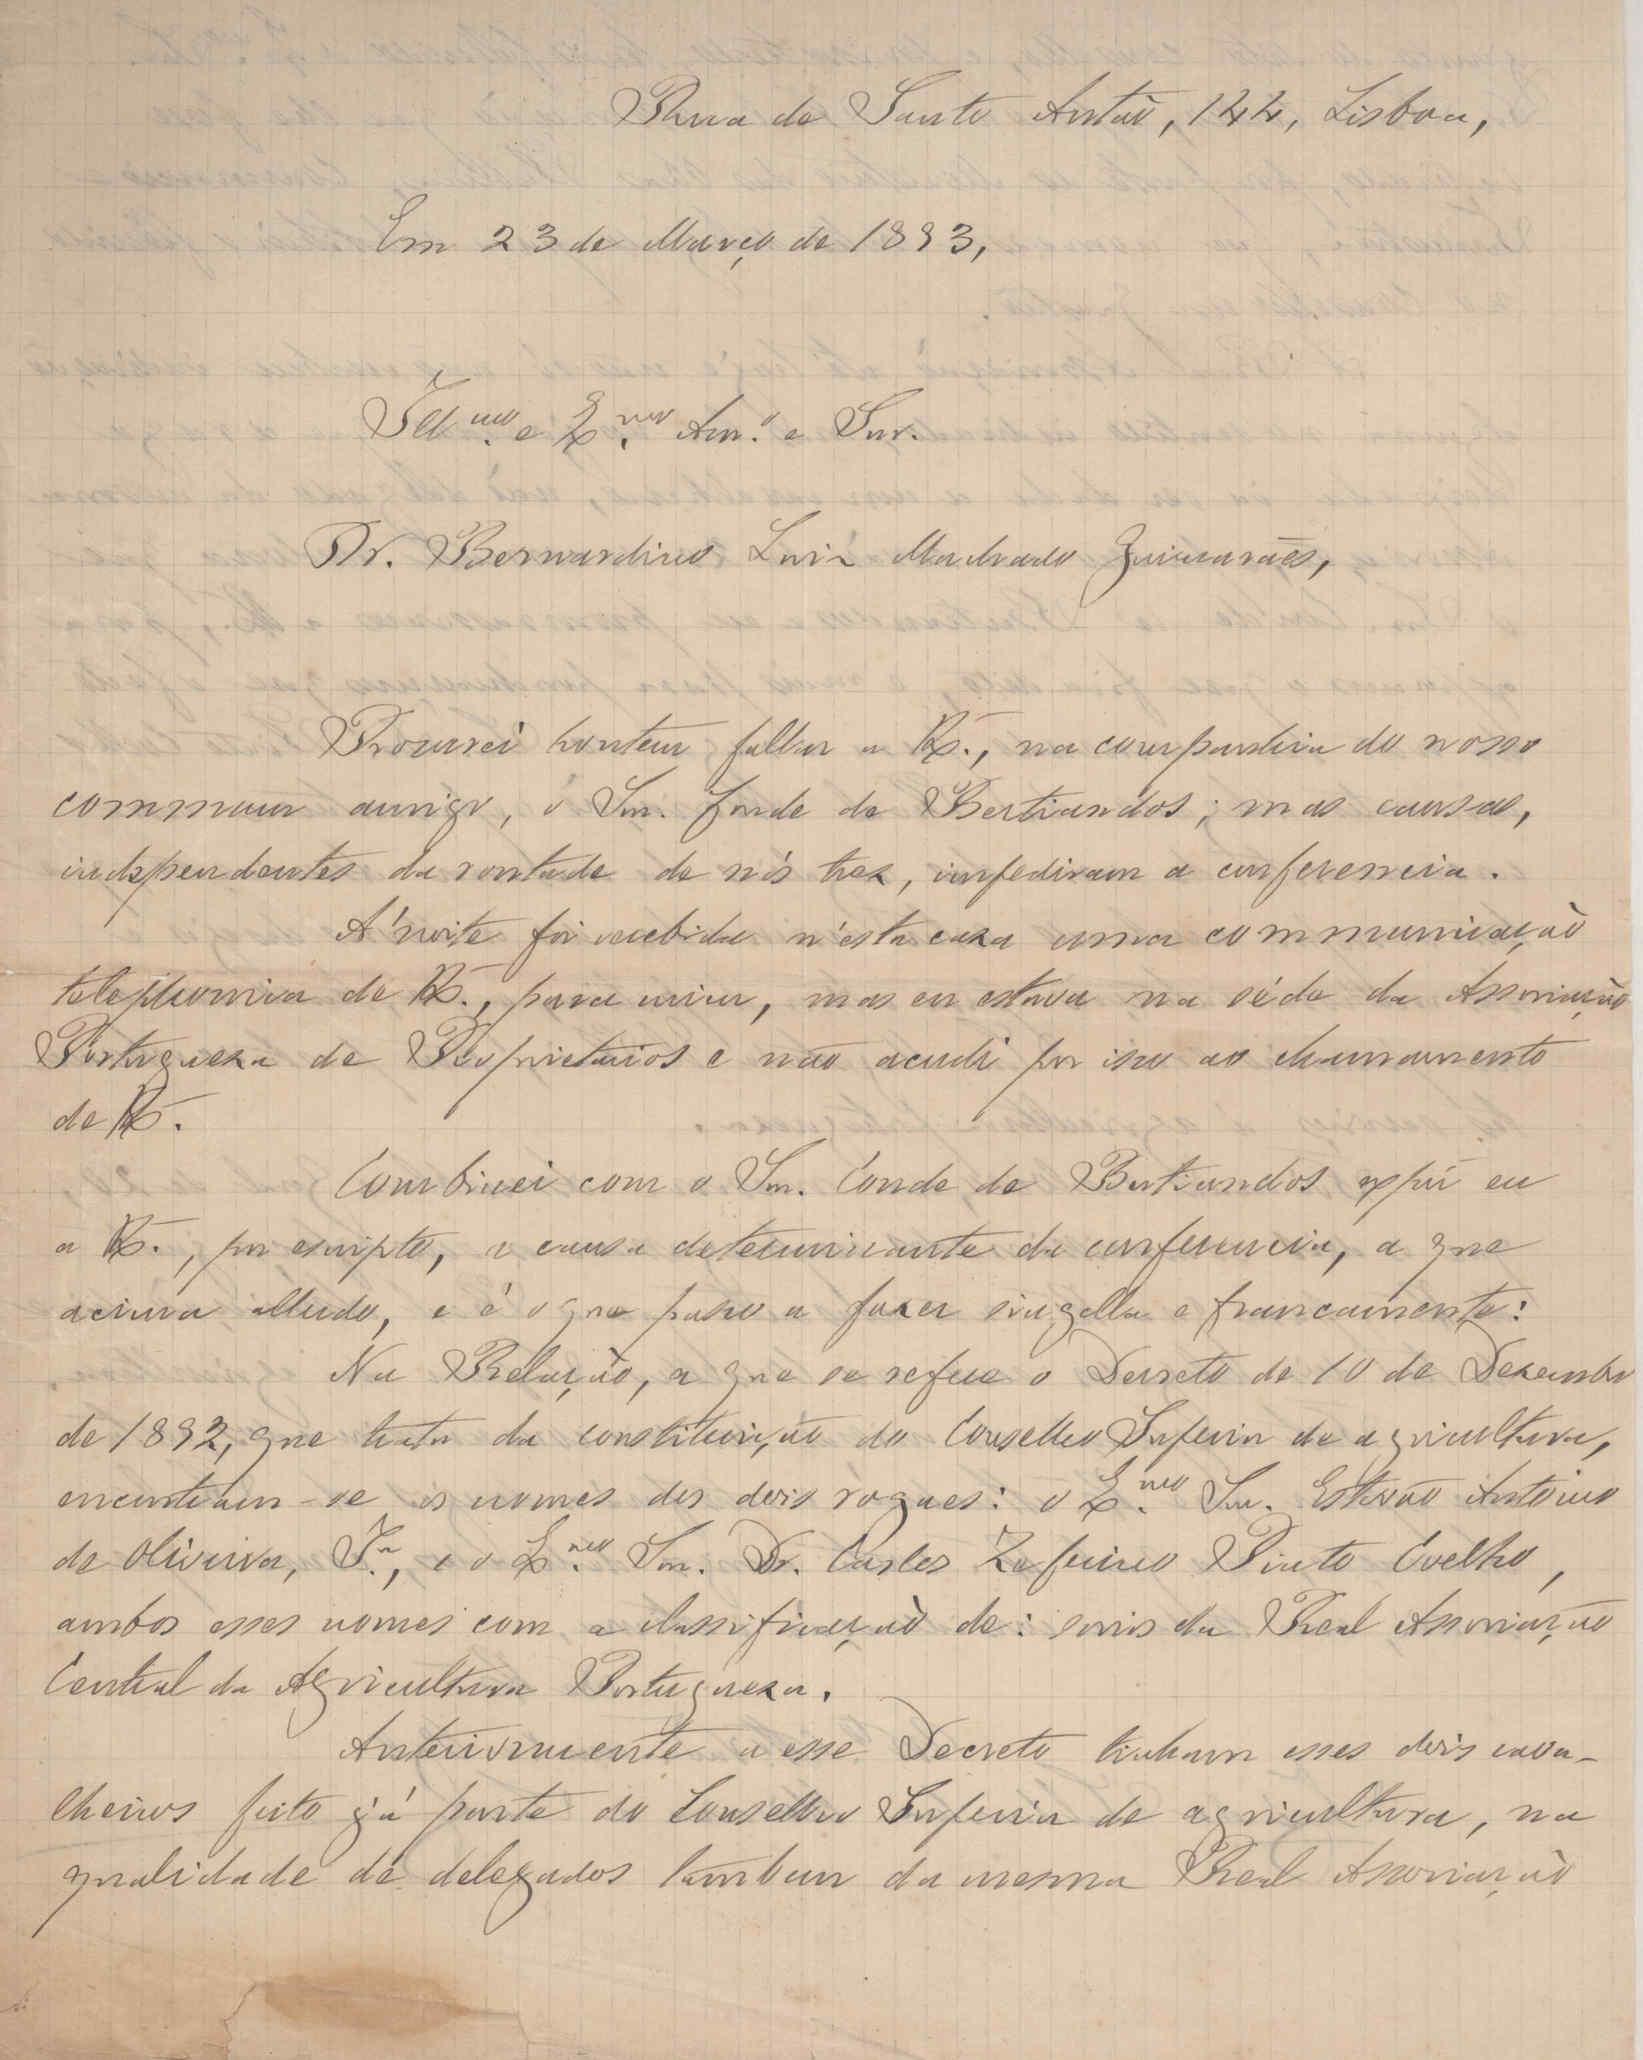 Rua de Santo Antão, 144, Lisboa,
Em 23 de Março de 1893,
Ill.mo e Ex.mo Am.o e Snr.
Dr. Bernardino Luiz Machado Guimarães,
Procurei hontem fallar a V. Ex.ª, na companhia do nosso
commum amigo, o Snr. Conde de Bertiandos; mas causas,
independentes da vontade de nós trez, impediram a conferencia.
Á noite foi recebida n'esta caza uma communicação
telephonica de V. Ex.ª, para mim, mas eu estava na séde da Associação
Portugueza de Proprietarios e não acudi por isso ao chamamento
de V. Ex.ª
Combinei com o Snr. Conde de Bertiandos expôr eu
a V. Ex.ª, por escripto, a causa determinante da conferencia, a que
acima alludo, e é o que passo a fazer singella e francamente:
Na Relação, a que se refere o Decreto de 10 de Dezembro
de 1892, que trata da constituição do Conselho Superior de agricultura,
encontram-se os nomes dos dois vogaes: o Ex.mo Snr. Estevão Antonio
de Oliveira, J.or, e o Ex.mo Snr. Dr. Carlos Zeferino Pinto Coelho,
ambos esses nomes com a classificação de: socios da Real Associação
Central da Agricultura Portugueza.
Anteriormente a esse Decreto tinham esses dois cava-
lheiros feito já parte do Conselho Superior de agricultura, na
qualidade de delegados tambem da mesma Real Associação